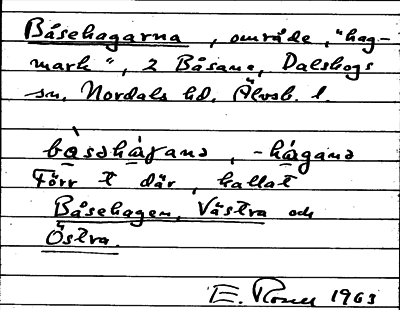 Båsehagarna, område, "hag-
mark", 2 Båsane, Dalskogs
sn, Nordals hd, Älvsb. l.
bȧsahàgana, -hágana
Förr t där, kallat
Båsehagen, Västra och
Östra.
E. Rosell 1963